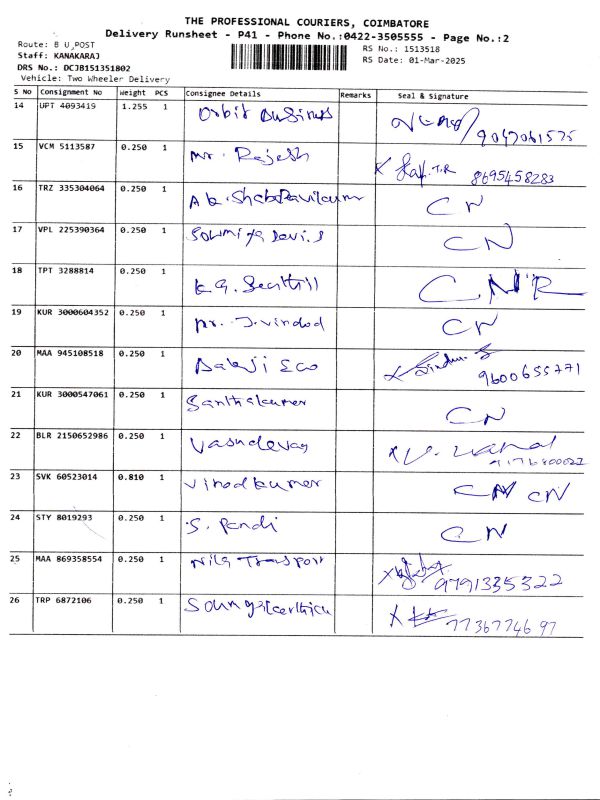 THE PROFESSIONAL COURIERS, COIMBATORE
Delivery Runsheet - P41 - Phone No.:0422-3505555 - Page No.:2
Route: B U,POST
Staff: KANAKARAJ
DRS No.: DCJB151351802
Vehicle: Two Wheeler Delivery
RS No.: 1513518
RS Date: 01-Mar-2025
S No Consignment No Weight PCS Consignee Details Remarks Seal & Signature
14 UPT 4093419 1.255 1 Orbit Business 9047061575
15 VCM 5113587 0.250 1 Mr. Rajesh 8695458283
16 TRZ 335304064 0.250 1 CN
17 VPL 225390364 0.250 1 Sowmiya Devi.S CN
18 TPT 3288814 0.250 1 K.G. Senthill CNR
19 KUR 3000604352 0.250 1 Mr. J. Vindod CN
20 MAA 945108518 0.250 1 Balaji Eco 9600655771
21 KUR 3000547061 0.250 1 Santhakumar CN
22 BLR 2150652986 0.250 1 Vasudevan
23 SVK 60523014 0.810 1 Vinodkumar CN CN
24 STY 8019293 0.250 1 S. Pandi CN
25 MAA 869358554 0.250 1 Nila Transport 9791335322
26 TRP 6872106 0.250 1 7736774697